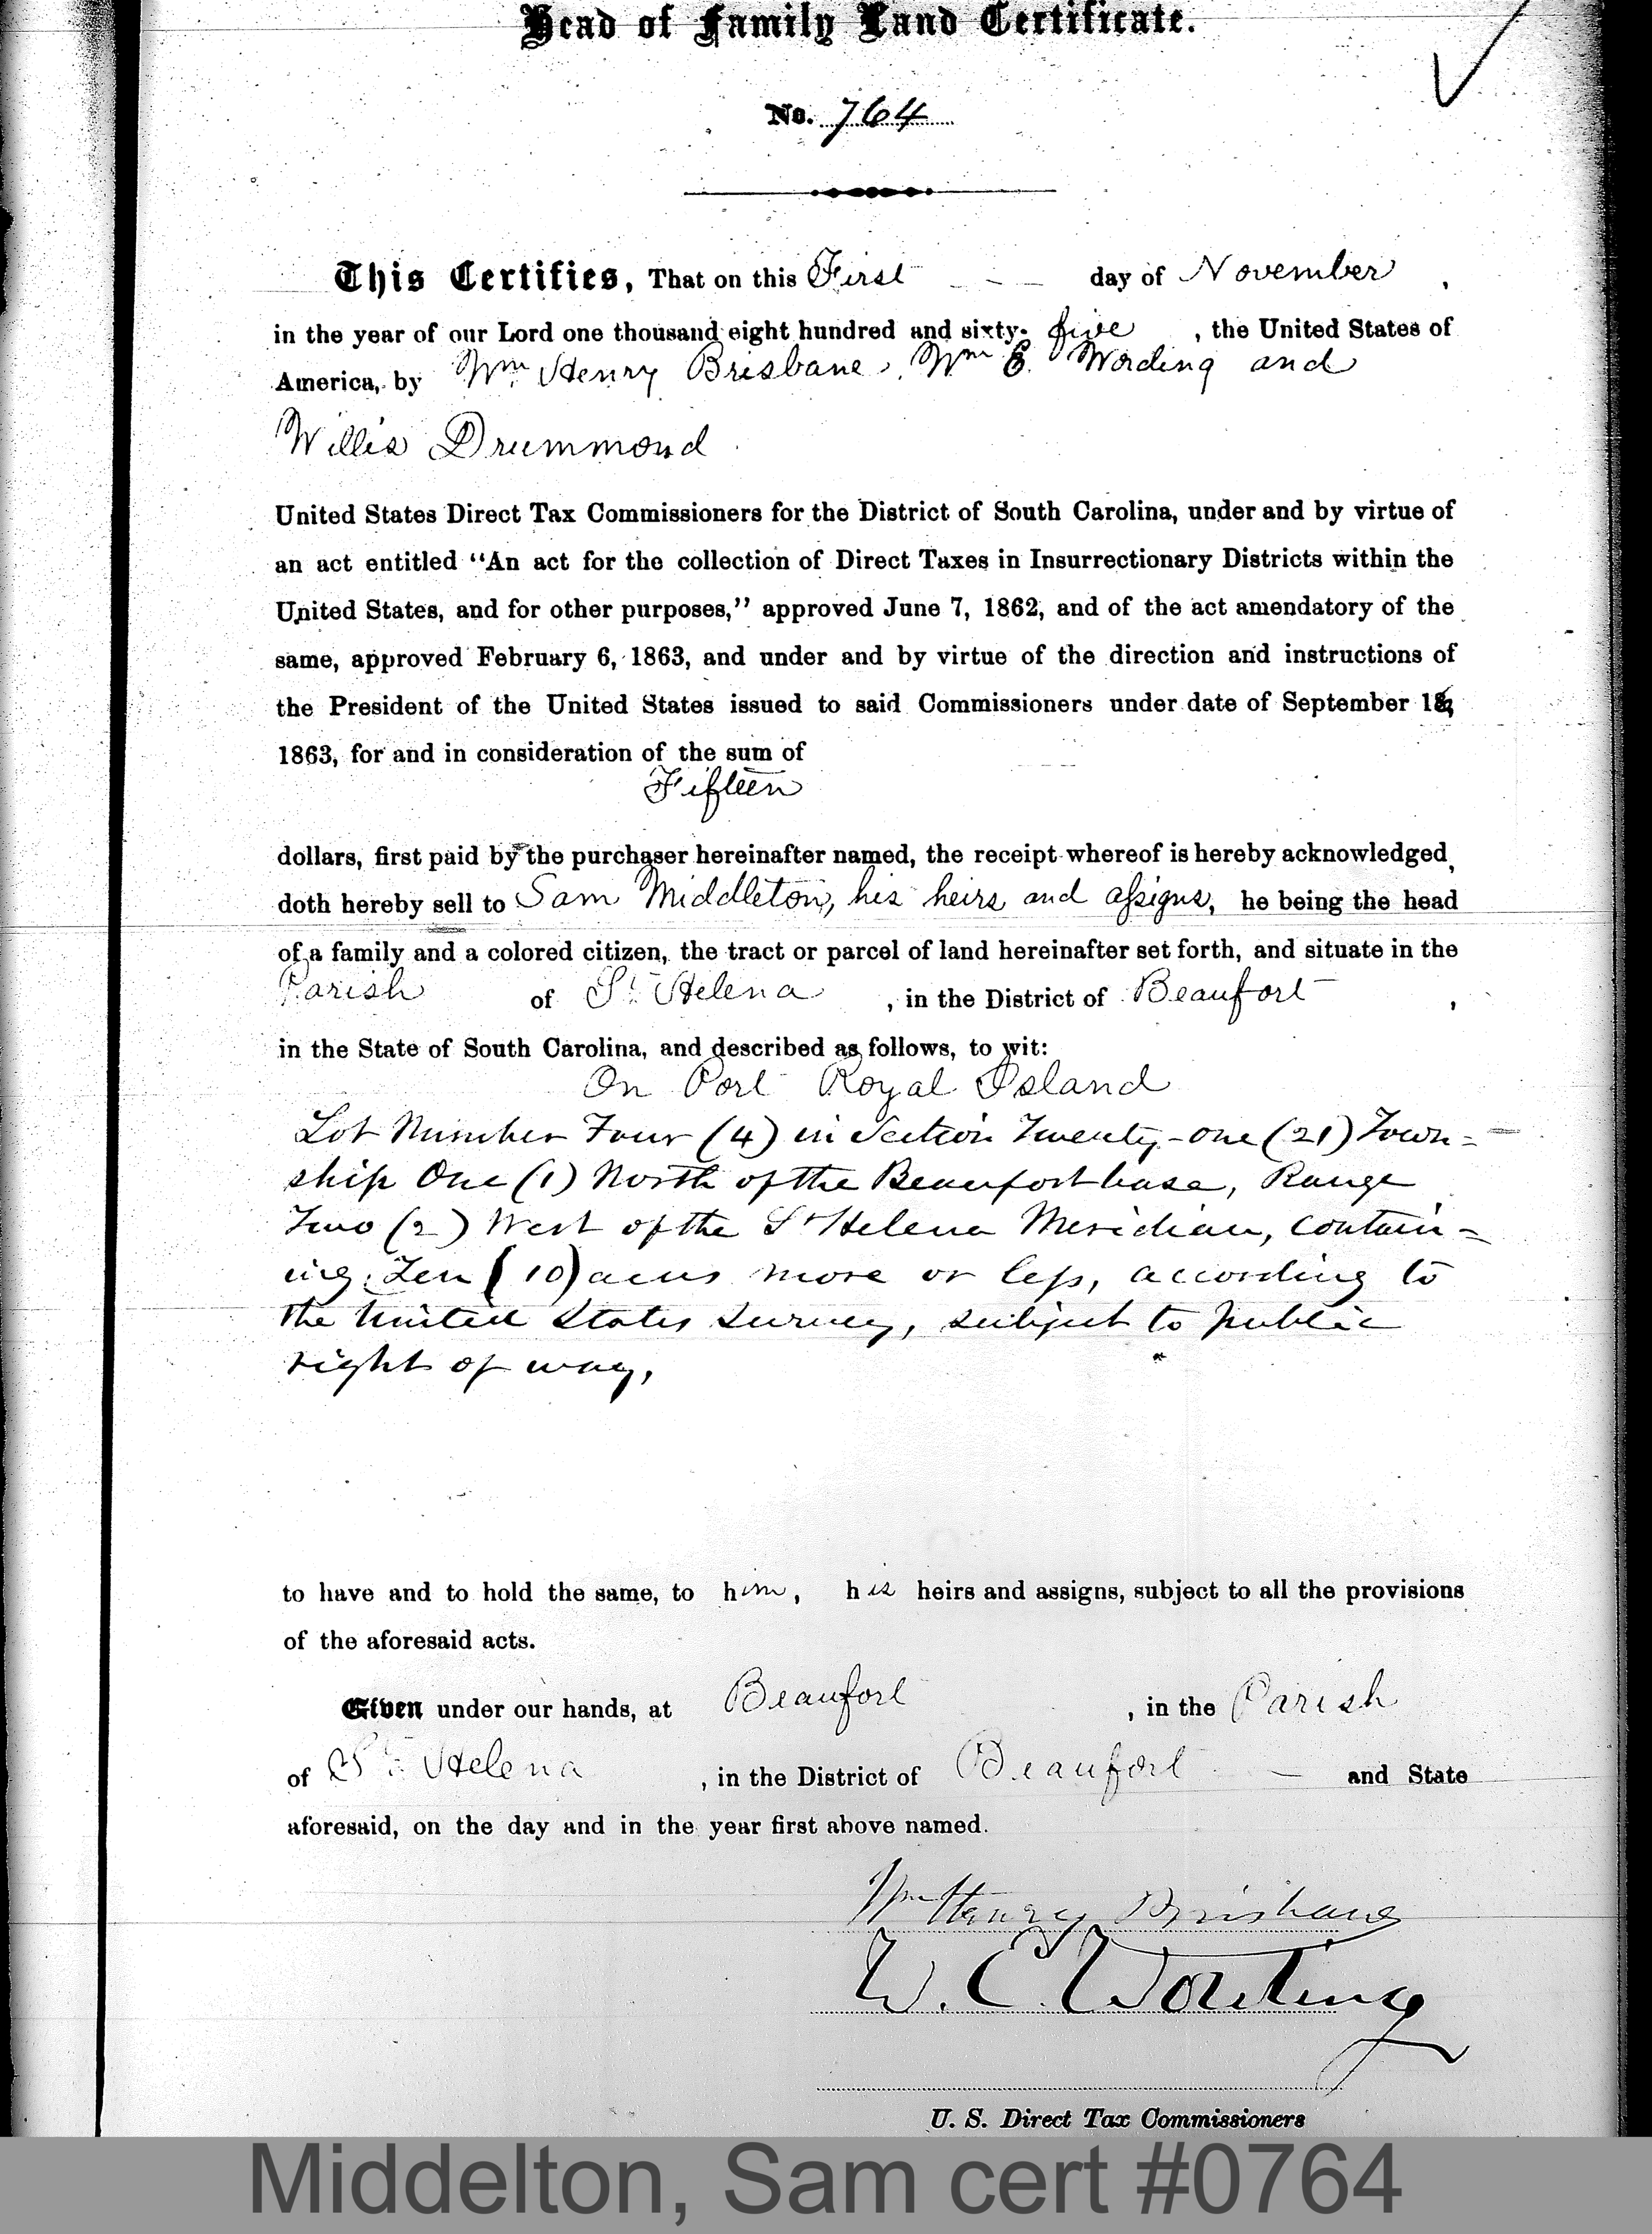 Head of Family Land Certificate.
No. 764
This Certifies, That on this First day of November,
in the year of our Lord one thousand eight hundred and sixty-five, the United States of
America, by Wm. Henry Brisbane, Wm E. Wording and
Willis Drummond
United States Direct Tax Commissioners for the District of South Carolina, under and by virtue of
an act entitled "An act for the collection of Direct Taxes in Insurrectionary Districts within the
United States, and for other purposes," approved June 7, 1862, and of the act amendatory of the
same, approved February 6, 1863, and under and by virtue of the direction and instructions of
the President of the United States issued to said Commissioners under date of September
1863, for and in consideration of the sum of
Fifteen
dollars, first paid by the purchaser hereinafter named, the receipt whereof is hereby acknowledged,
doth hereby sell to Sam Middleton, his heirs and assigns, he being the head
of a family and a colored citizen, the tract or parcel of land hereinafter set forth, and situate in the
Parish of St Helena, in the District of Beaufort,
in the State of South Carolina, and described as follows, to wit:
On Port Royal Island
Lot Number Four (4) in Section Twenty-one (21) Town=
ship One (1) North of the Beaufort base, Range
Two (2) West of the St Helena Meridian, contain=
ing Ten (10) acres more or less, according to
the United States survey, subject to public
right of way,
to have and to hold the same, to him, his heirs and assigns, subject to all the provisions
of the aforesaid acts.
Given under our hands, at Beaufort, in the Parish
of St Helena, in the District of Beaufort and State
aforesaid, on the day and in the year first above named.
Wm Henry Brisbane
W. E. Wording
U. S. Direct Tax Commissioners
Middelton, Sam cert #0764